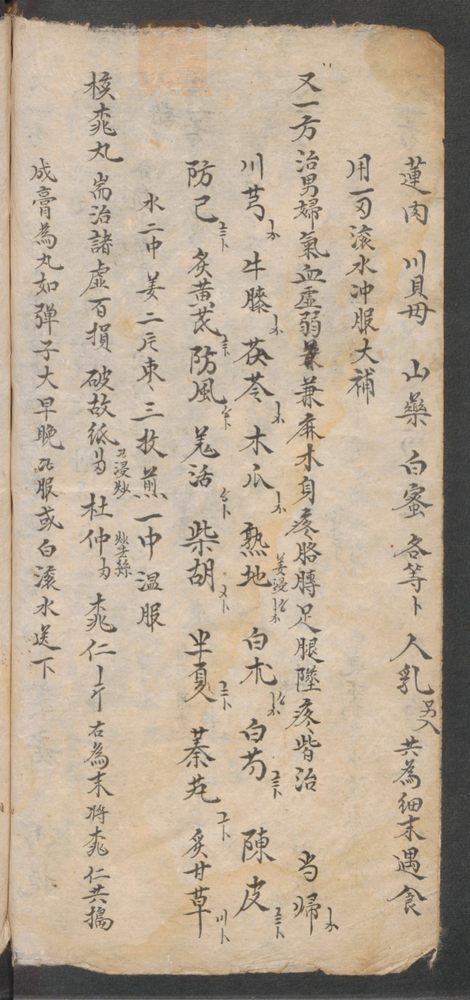 蓮肉 川貝母 山藥 白蜜 各等卜 人乳另入 共為細末遇食
用一刄滾水冲服大補
又一方治男婦氣血虛弱兼麻木身疼胳膊足腿墜疼皆治 当歸
川芎 牛膝 茯苓 木瓜 熟地姜浸 白朮 白芍 陳皮
防己 炙黄芪 防風 羌活 柴胡 半夏 蓁艽 炙甘草
水二中 姜二片 枣三枚 煎一中 温服
核桃丸 耑治諸虛百損 破故纸 浸炒 杜仲 炒去絲 桃仁 右為末將桃仁共搗
成膏為丸如彈子大早晚服或白滚水送下